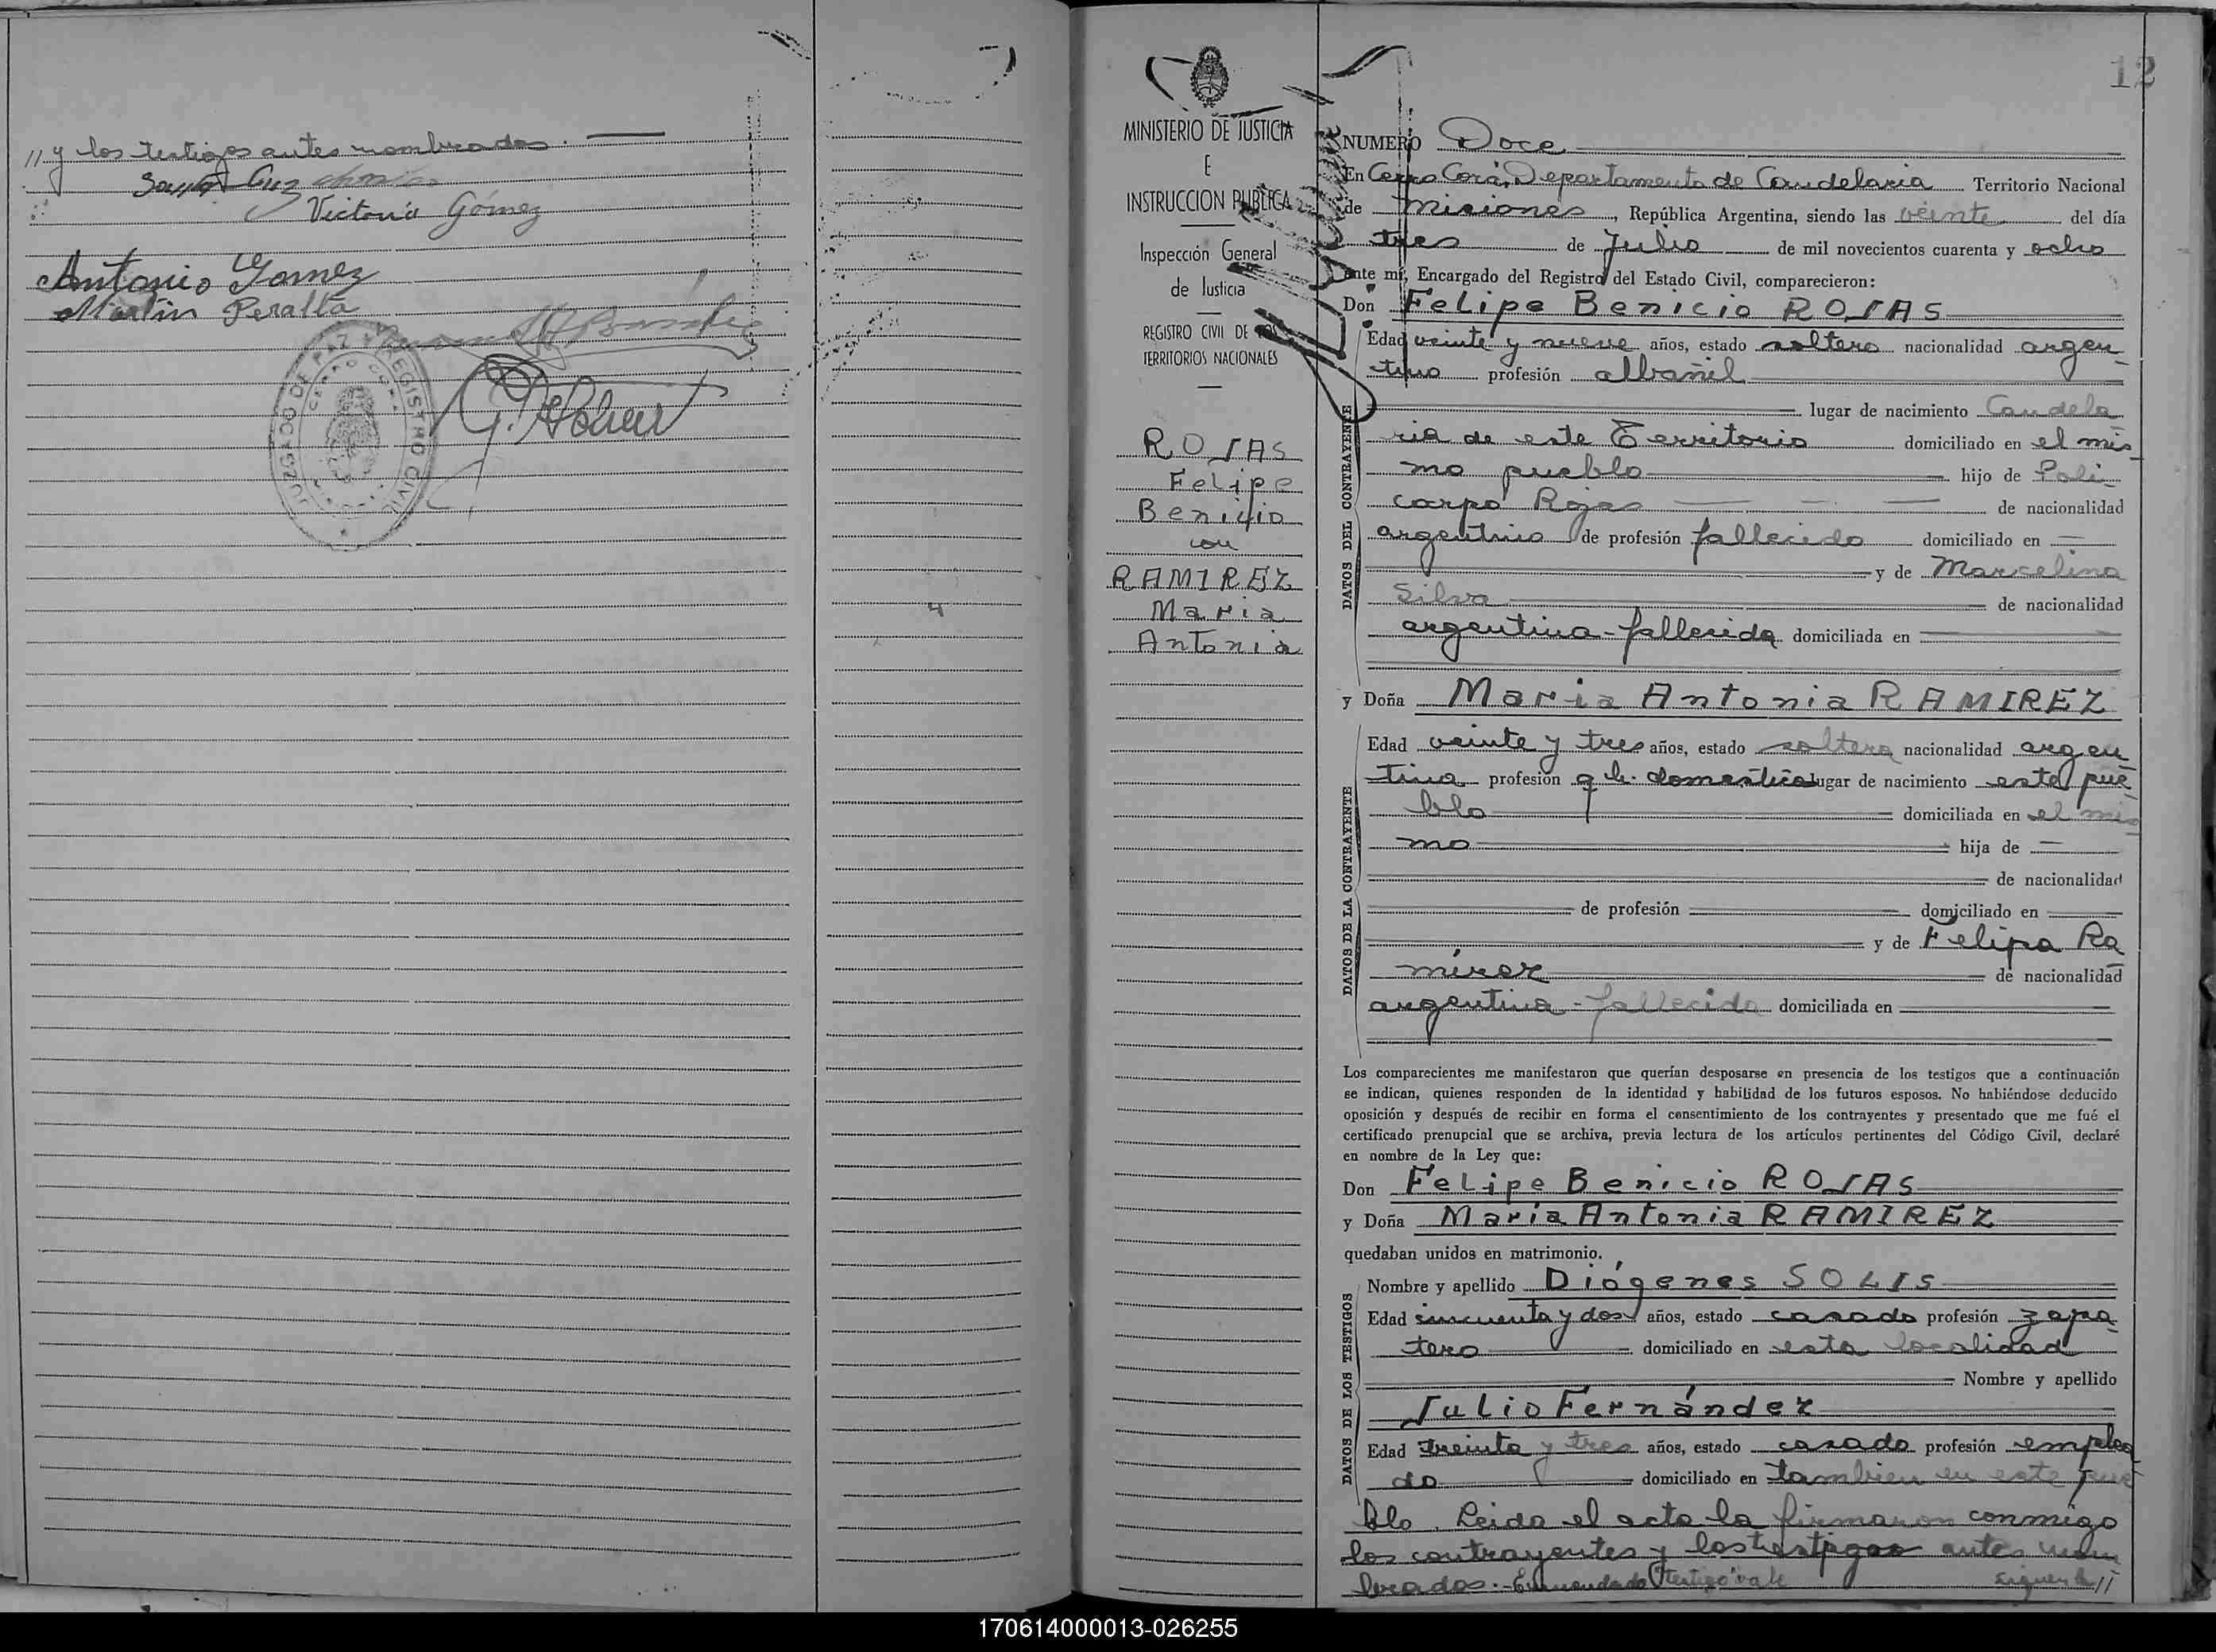 // y los testigos antes nombrados.
Victoria Gómez
Antonio Gomez
Martin Peralta
JUZGADO DE PAZ Y REGISTRO CIVIL
CERRO CORA
12
MINISTERIO DE JUSTICIA
E
INSTRUCCION PUBLICA
Inspección General
de Justicia
REGISTRO CIVIL DE LOS
TERRITORIOS NACIONALES
ROJAS
Felipe
Benicio
con
RAMIREZ
Maria
Antonia
NUMERO Doce
En Cerro Corá, Departamento de Candelaria Territorio Nacional
de Misiones, República Argentina, siendo las veinte del día
tres de Julio de mil novecientos cuarenta y ocho
ante mí, Encargado del Registro del Estado Civil, comparecieron:
Don Felipe Benicio ROJAS
DATOS DEL CONTRAYENTE
Edad veinte y nueve años, estado soltero nacionalidad argen-
tino profesión albañil
lugar de nacimiento Candela
ria de este Territorio domiciliado en el mis-
mo pueblo hijo de Poli-
carpo Rojas de nacionalidad
argentino de profesión fallecido domiciliado en
y de Marcelina
Silva de nacionalidad
argentina - fallecida domiciliada en
y Doña Maria Antonia RAMIREZ
DATOS DE LA CONTRAYENTE
Edad veinte y tres años, estado soltera nacionalidad argen-
tina profesión q h. domestico lugar de nacimiento este pue-
blo domiciliada en el mis
mo hija de
de nacionalidad
de profesión domiciliado en
y de Felipa Ra
mírez de nacionalidad
argentina - fallecida domiciliada en
Los comparecientes me manifestaron que querían desposarse en presencia de los testigos que a continuación
se indican, quienes responden de la identidad y habilidad de los futuros esposos. No habiéndose deducido
oposición y después de recibir en forma el consentimiento de los contrayentes y presentado que me fué el
certificado prenupcial que se archiva, previa lectura de los artículos pertinentes del Código Civil, declaré
en nombre de la Ley que:
Don Felipe Benicio ROJAS
y Doña María Antonia RAMIREZ
quedaban unidos en matrimonio.
DATOS DE LOS TESTIGOS
Nombre y apellido Diógenes SOLIS
Edad sincuenta y dos años, estado casado profesión zapa-
tero domiciliado en esta localidad
Nombre y apellido
Julio Fernández
Edad treinta y tres años, estado casado profesión emplea
do domiciliado en tambien en este pue
blo. Leida el acta la firmaron conmigo
los contrayentes y los testigos antes nom
brados. - Enmendado "testigo" vale sigue la //
170614000013-026255